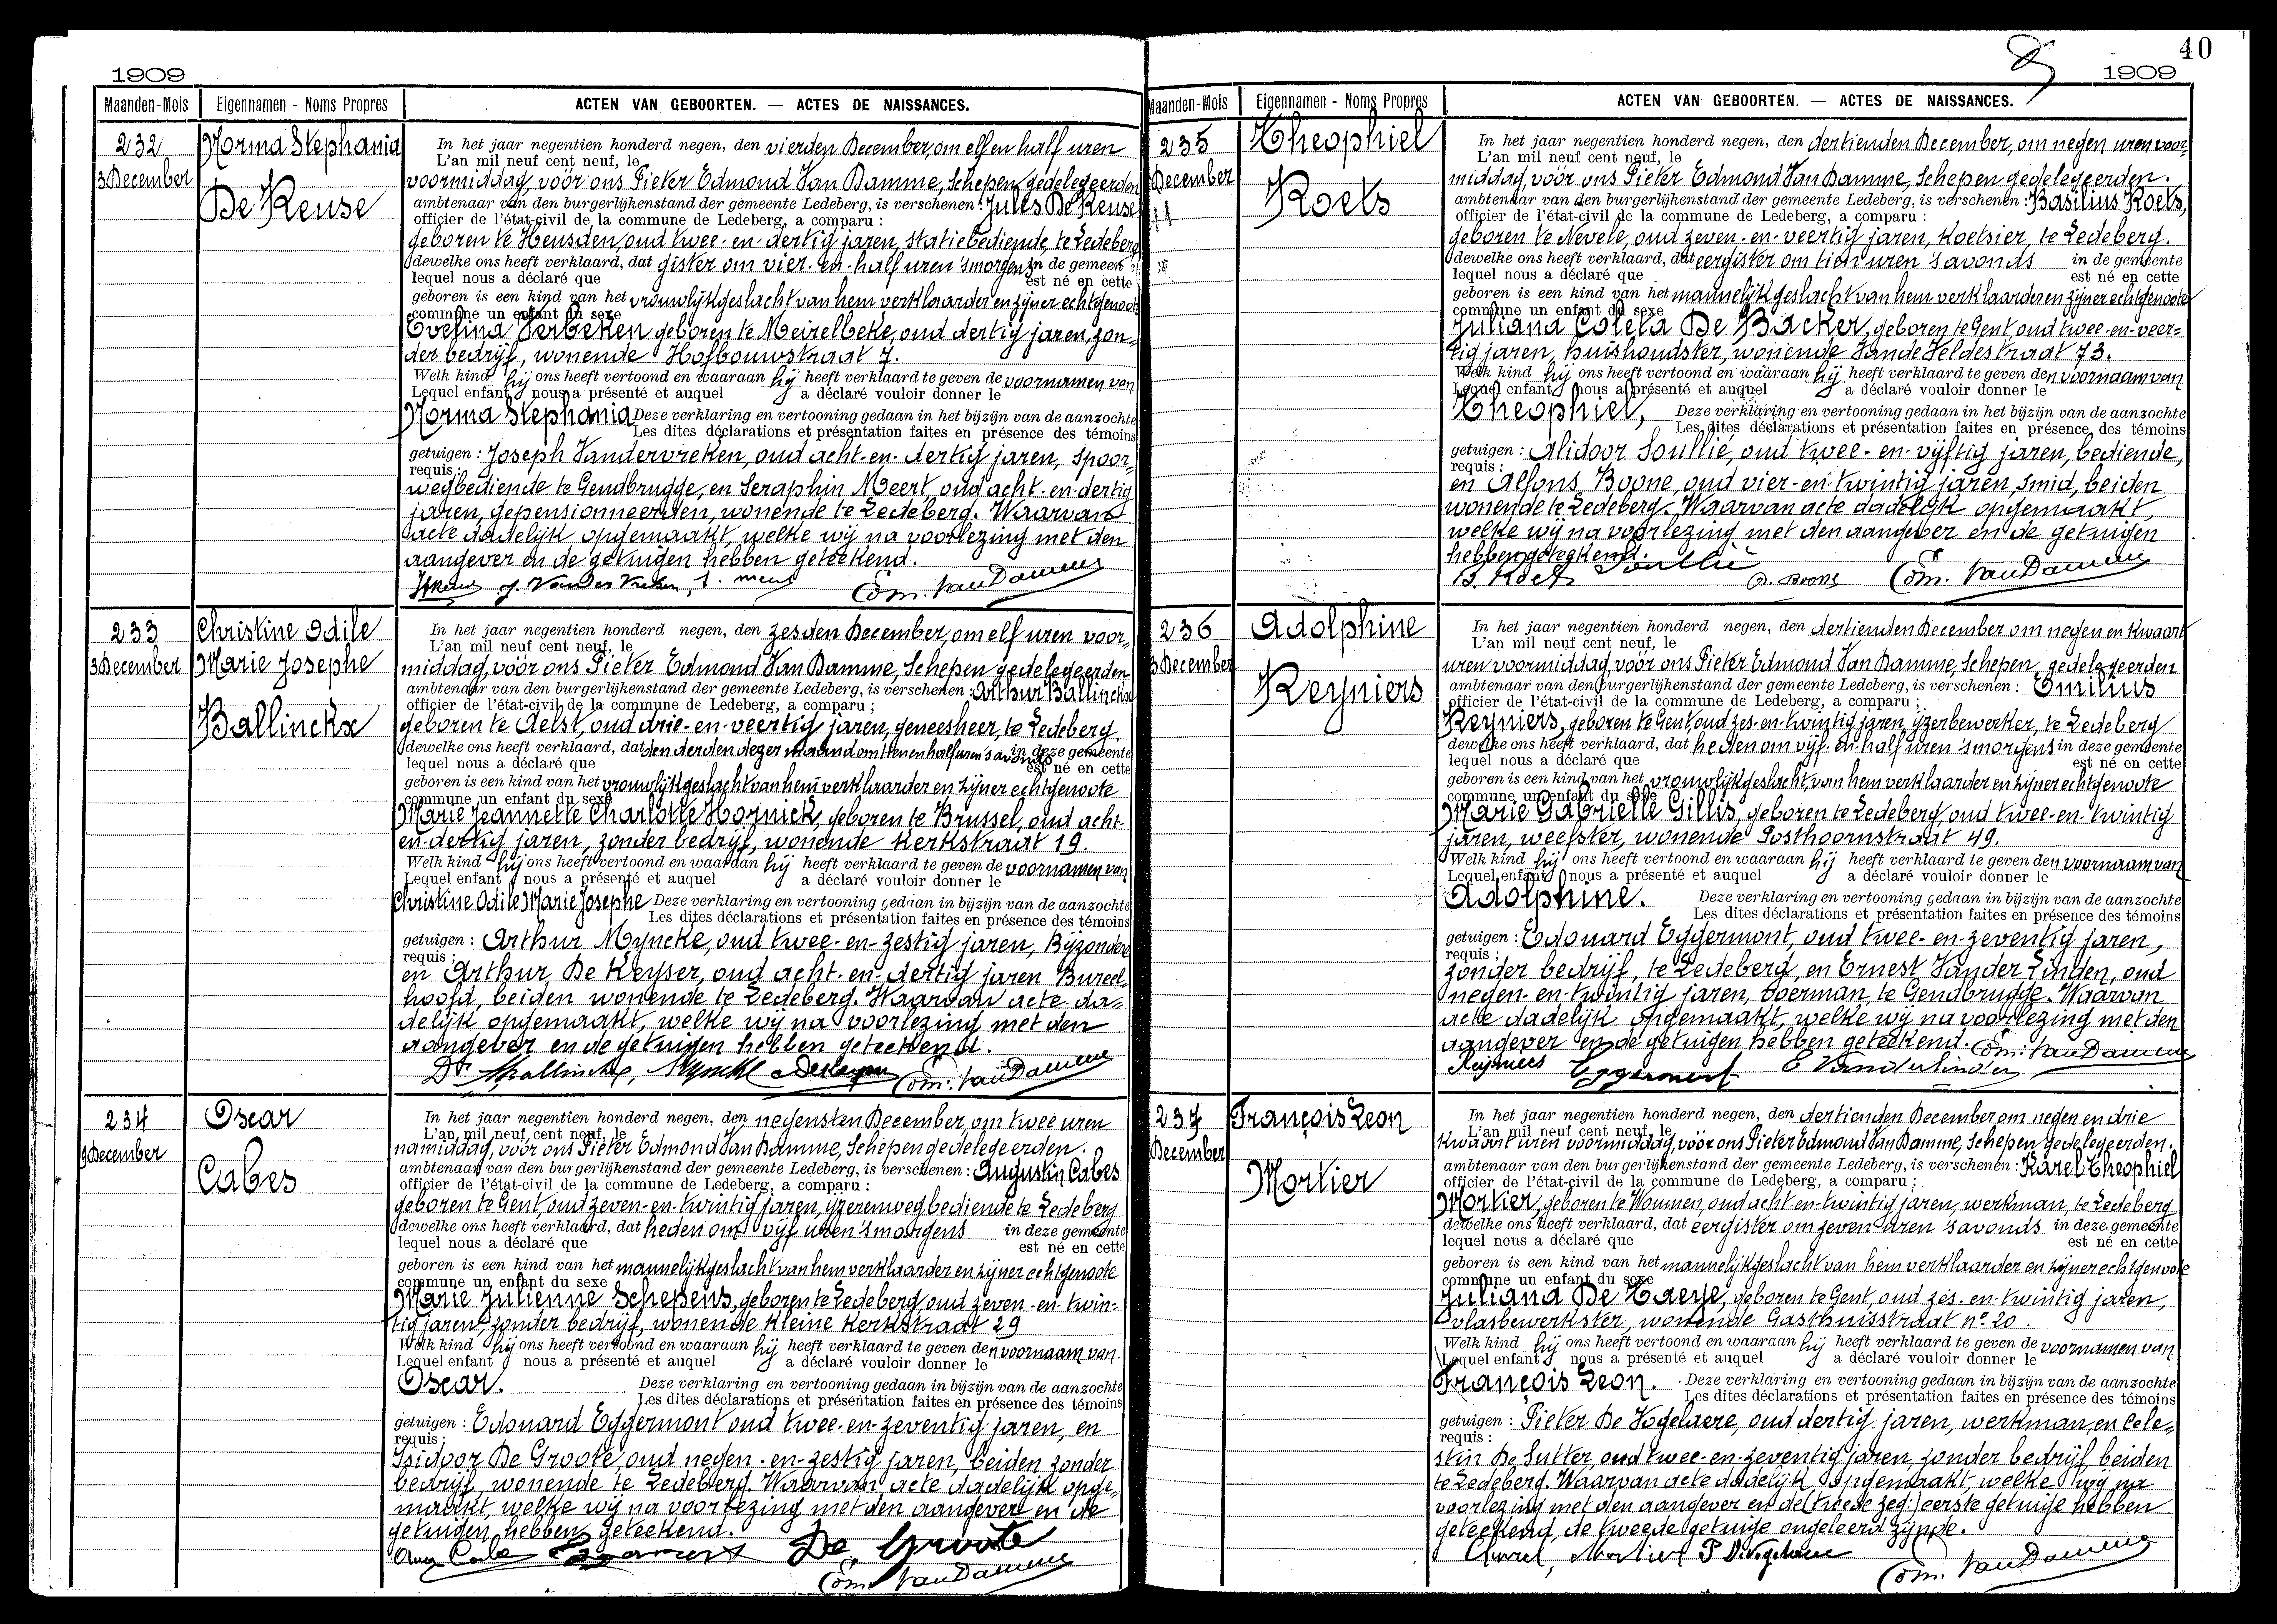 1909
Maanden-Mois Eigennamen - Noms Propres ACTEN VAN GEBOORTEN. — ACTES DE NAISSANCES.
232
3 December
Norma Stephania
De Keuse
In het jaar negentien honderd negen, den vierden December, om elf en half uren
L'an mil neuf cent neuf, le
voormiddag, vóór ons Pieter Edmond Van Damme, Schepen, gedelegeerden
ambtenaar van den burgerlijkenstand der gemeente Ledeberg, is verschenen : Jules De Keuse
officier de l'état-civil de la commune de Ledeberg, a comparu :
geboren te Heusden, oud twee-en-dertig jaren, statiebediende, te Ledeberg
dewelke ons heeft verklaard, dat gister om vier-en-half uren 'smorgens in de gemeen
lequel nous a déclaré que est né en cette
geboren is een kind van het vrouwlijkgeslacht van hem verklaarder en zijner echtgenoote
commune un enfant du sexe
Evelina Verbeken geboren te Meirelbeke, oud dertig jaren, zon-
der bedrijf, wonende Hofbouwstraat 7.
Welk kind hij ons heeft vertoond en waaraan hij heeft verklaard te geven de voornamen van
Lequel enfant nous a présenté et auquel a déclaré vouloir donner le
Norma Stephania Deze verklaring en vertooning gedaan in het bijzijn van de aanzochte
Les dites déclarations et présentation faites en présence des témoins
getuigen : Joseph Vandervreken, oud acht-en-dertig jaren, spoor-
requis :
wegbediende te Gendbrugge, en Seraphin Meert, oud acht-en-dertig
jaren, gepensionneerden, wonende te Ledeberg. Waarvan
acte dadelijk opgemaakt, welke wij na voorlezing met den
aangever en de getuigen hebben geteekend.
J. Vander Vreken, Edm. Van Damme
233
3 December
Christine Odile
Marie Josephe
Ballinckx
In het jaar negentien honderd negen, den zesden December, om elf uren voor-
L'an mil neuf cent neuf, le
middag, vóór ons Pieter Edmond Van Damme, Schepen gedelegeerden
ambtenaar van den burgerlijkenstand der gemeente Ledeberg, is verschenen : Arthur Ballinckx
officier de l'état-civil de la commune de Ledeberg, a comparu ;
geboren te Aelst, oud drie-en-veertig jaren, geneesheer, te Ledeberg.
dewelke ons heeft verklaard, dat den derden dezer maand om tien en half uren 's avonds in deze gemeente
lequel nous a déclaré que est né en cette
geboren is een kind van het vrouwlijkgeslacht van hem verklaarder en zijner echtgenoote
commune un enfant du sexe
Marie Jeannette Charlotte Hornick, geboren te Brussel, oud acht-
en-dertig jaren, zonder bedrijf, wonende Kerkstraat 19.
Welk kind hij ons heeft vertoond en waaraan hij heeft verklaard te geven de voornamen van
Lequel enfant nous a présenté et auquel a déclaré vouloir donner le
Christine Odile Marie Josephe Deze verklaring en vertooning gedaan in bijzijn van de aanzochte
Les dites déclarations et présentation faites en présence des témoins
getuigen : Arthur Myncke, oud twee-en-zestig jaren, Bijzondere
requis :
en Arthur De Keyser, oud acht-en-dertig jaren Bureel-
hoofd, beiden wonende te Ledeberg. Waarvan acte da-
delijk opgemaakt, welke wij na voorlezing met den
aangever en de getuigen hebben geteekend.
Dr Aballinckx, Myncke Dekeyser Edm. Van Damme
234
9 December
Oscar
Cabes
In het jaar negentien honderd negen, den negensten December, om twee uren
L'an mil neuf cent neuf, le
namiddag, vóór ons Pieter Edmond Van Damme, Schepen gedelegeerden.
ambtenaar van den burgerlijkenstand der gemeente Ledeberg, is verschenen : Augustin Cabes
officier de l'état-civil de la commune de Ledeberg, a comparu :
geboren te Gent, oud zeven-en-twintig jaren, ijzerenwegbediende te Ledeberg
dewelke ons heeft verklaard, dat heden om vijf uren 'smorgens in deze gemeente
lequel nous a déclaré que est né en cette
geboren is een kind van het mannelijkgeslacht van hem verklaarder en zijner echtgenoote
commune un enfant du sexe
Marie Julienne Schepens, geboren te Ledeberg, oud zeven-en-twin-
tig jaren, zonder bedrijf, wonende Kleine Kerkstraat 29
Welk kind hij ons heeft vertoond en waaraan hij heeft verklaard te geven den voornaam van
Lequel enfant nous a présenté et auquel a déclaré vouloir donner le
Oscar. Deze verklaring en vertooning gedaan in bijzijn van de aanzochte
Les dites déclarations et présentation faites en présence des témoins
getuigen : Edouard Eggermont oud twee-en-zeventig jaren, en
requis :
Isidoor De Groote, oud negen-en-zestig jaren, beiden zonder
bedrijf, wonende te Ledeberg. Waarvan acte dadelijk opge-
maakt, welke wij na voorlezing met den aangever en de
getuigen hebben geteekend.
Aug Cabes Eggermont De Groote
Edm. Van Damme
40
1909
Maanden-Mois Eigennamen - Noms Propres ACTEN VAN GEBOORTEN. — ACTES DE NAISSANCES.
235
December
11
Theophiel
Roets
In het jaar negentien honderd negen, den dertienden December, om negen uren voor-
L'an mil neuf cent neuf, le
middag, vóór ons Pieter Edmond Van Damme, Schepen gedelegeerden.
ambtenaar van den burgerlijkenstand der gemeente Ledeberg, is verschenen : Basilius Roets,
officier de l'état-civil de la commune de Ledeberg, a comparu :
geboren te Nevele, oud zeven-en-veertig jaren, koetsier, te Ledeberg.
dewelke ons heeft verklaard, dat eergister om tien uren 's avonds in de gemeente
lequel nous a déclaré que est né en cette
geboren is een kind van het mannelijkgeslacht van hem verklaarder en zijner echtgenoote
commune un enfant du sexe
Juliana Coleta De Backer, geboren te Gent, oud twee-en-veer-
tig jaren, huishoudster, wonende Vande Veldestraat 73.
Welk kind hij ons heeft vertoond en waaraan hij heeft verklaard te geven den voornaam van
Lequel enfant nous a présenté et auquel a déclaré vouloir donner le
Theophiel, Deze verklaring en vertooning gedaan in het bijzijn van de aanzochte
Les dites déclarations et présentation faites en présence des témoins
getuigen : Alidoor Soullié, oud twee-en-vijftig jaren, bediende,
requis :
en Alfons Boone, oud vier-en-twintig jaren, smid, beiden
wonende te Ledeberg. Waarvan acte dadelijk opgemaakt,
welke wij na voorlezing met den aangever en de getuigen
hebben geteekend.
B. Roets Soullié A. Boone Edm. Van Damme
236
13 December
Adolphine
Reyniers
In het jaar negentien honderd negen, den dertienden December om negen en kwaart
L'an mil neuf cent neuf, le
uren voormiddag, vóór ons Pieter Edmond Van Damme, Schepen, gedelegeerden
ambtenaar van den burgerlijkenstand der gemeente Ledeberg, is verschenen : Emilius
officier de l'état-civil de la commune de Ledeberg, a comparu ;
Reyniers, geboren te Gent, oud zes-en-twintig jaren, ijzerbewerker, te Ledeberg
dewelke ons heeft verklaard, dat heden om vijf-en-half uren 'smorgens in deze gemeente
lequel nous a déclaré que est né en cette
geboren is een kind van het vrouwlijkgeslacht, van hem verklaarder en zijner echtgenoote
commune un enfant du sexe
Marie Gabrielle Gillis, geboren te Ledeberg, oud twee-en-twintig
jaren, weefster, wonende Posthoornstraat 49.
Welk kind hij ons heeft vertoond en waaraan hij heeft verklaard te geven den voornaam van
Lequel enfant nous a présenté et auquel a déclaré vouloir donner le
Adolphine. Deze verklaring en vertooning gedaan in bijzijn van de aanzochte
Les dites déclarations et présentation faites en présence des témoins
getuigen : Edouard Eggermont, oud twee-en-zeventig jaren,
requis :
zonder bedrijf, te Ledeberg, en Ernest Vander Linden, oud
negen-en-twintig jaren, voerman, te Gendbrugge. Waarvan
acte dadelijk opgemaakt, welke wij na voorlezing met den
aangever en de getuigen hebben geteekend. Edm. Van Damme
Reyniers Eggermont E Vanderlinden
237
December
François Leon
Mortier
In het jaar negentien honderd negen, den dertienden December om negen en drie
L'an mil neuf cent neuf, le
kwaart uren voormiddag, vóór ons Pieter Edmond Van Damme, Schepen gedelegeerden.
ambtenaar van den burgerlijkenstand der gemeente Ledeberg, is verschenen : Karel Theophiel
officier de l'état-civil de la commune de Ledeberg, a comparu ;
Mortier, geboren te Woumen, oud acht-en-twintig jaren, werkman, te Ledeberg
dewelke ons heeft verklaard, dat eergister om zeven uren 's avonds in deze gemeente
lequel nous a déclaré que est né en cette
geboren is een kind van het mannelijkgeslacht van hem verklaarder en zijner echtgenoote
commune un enfant du sexe
Juliana De Taeye, geboren te Gent, oud zes-en-twintig jaren,
vlasbewerkster, wonende Gasthuisstraat n° 20.
Welk kind hij ons heeft vertoond en waaraan hij heeft verklaard te geven de voornamen van
Lequel enfant nous a présenté et auquel a déclaré vouloir donner le
François Leon. Deze verklaring en vertooning gedaan in bijzijn van de aanzochte
Les dites déclarations et présentation faites en présence des témoins
getuigen : Pieter De Vogelaere, oud dertig jaren, werkman, en Cele-
requis :
stin De Sutter, oud twee-en-zeventig jaren, zonder bedrijf, beiden
te Ledeberg. Waarvan acte dadelijk opgemaakt, welke wij na
voorlezing met den aangever en de (tweede zeg:) eerste getuige hebben
geteekend, de tweede getuige ongeleerd zijnde.
Mortier P D. Vogelaere Edm. Van Damme